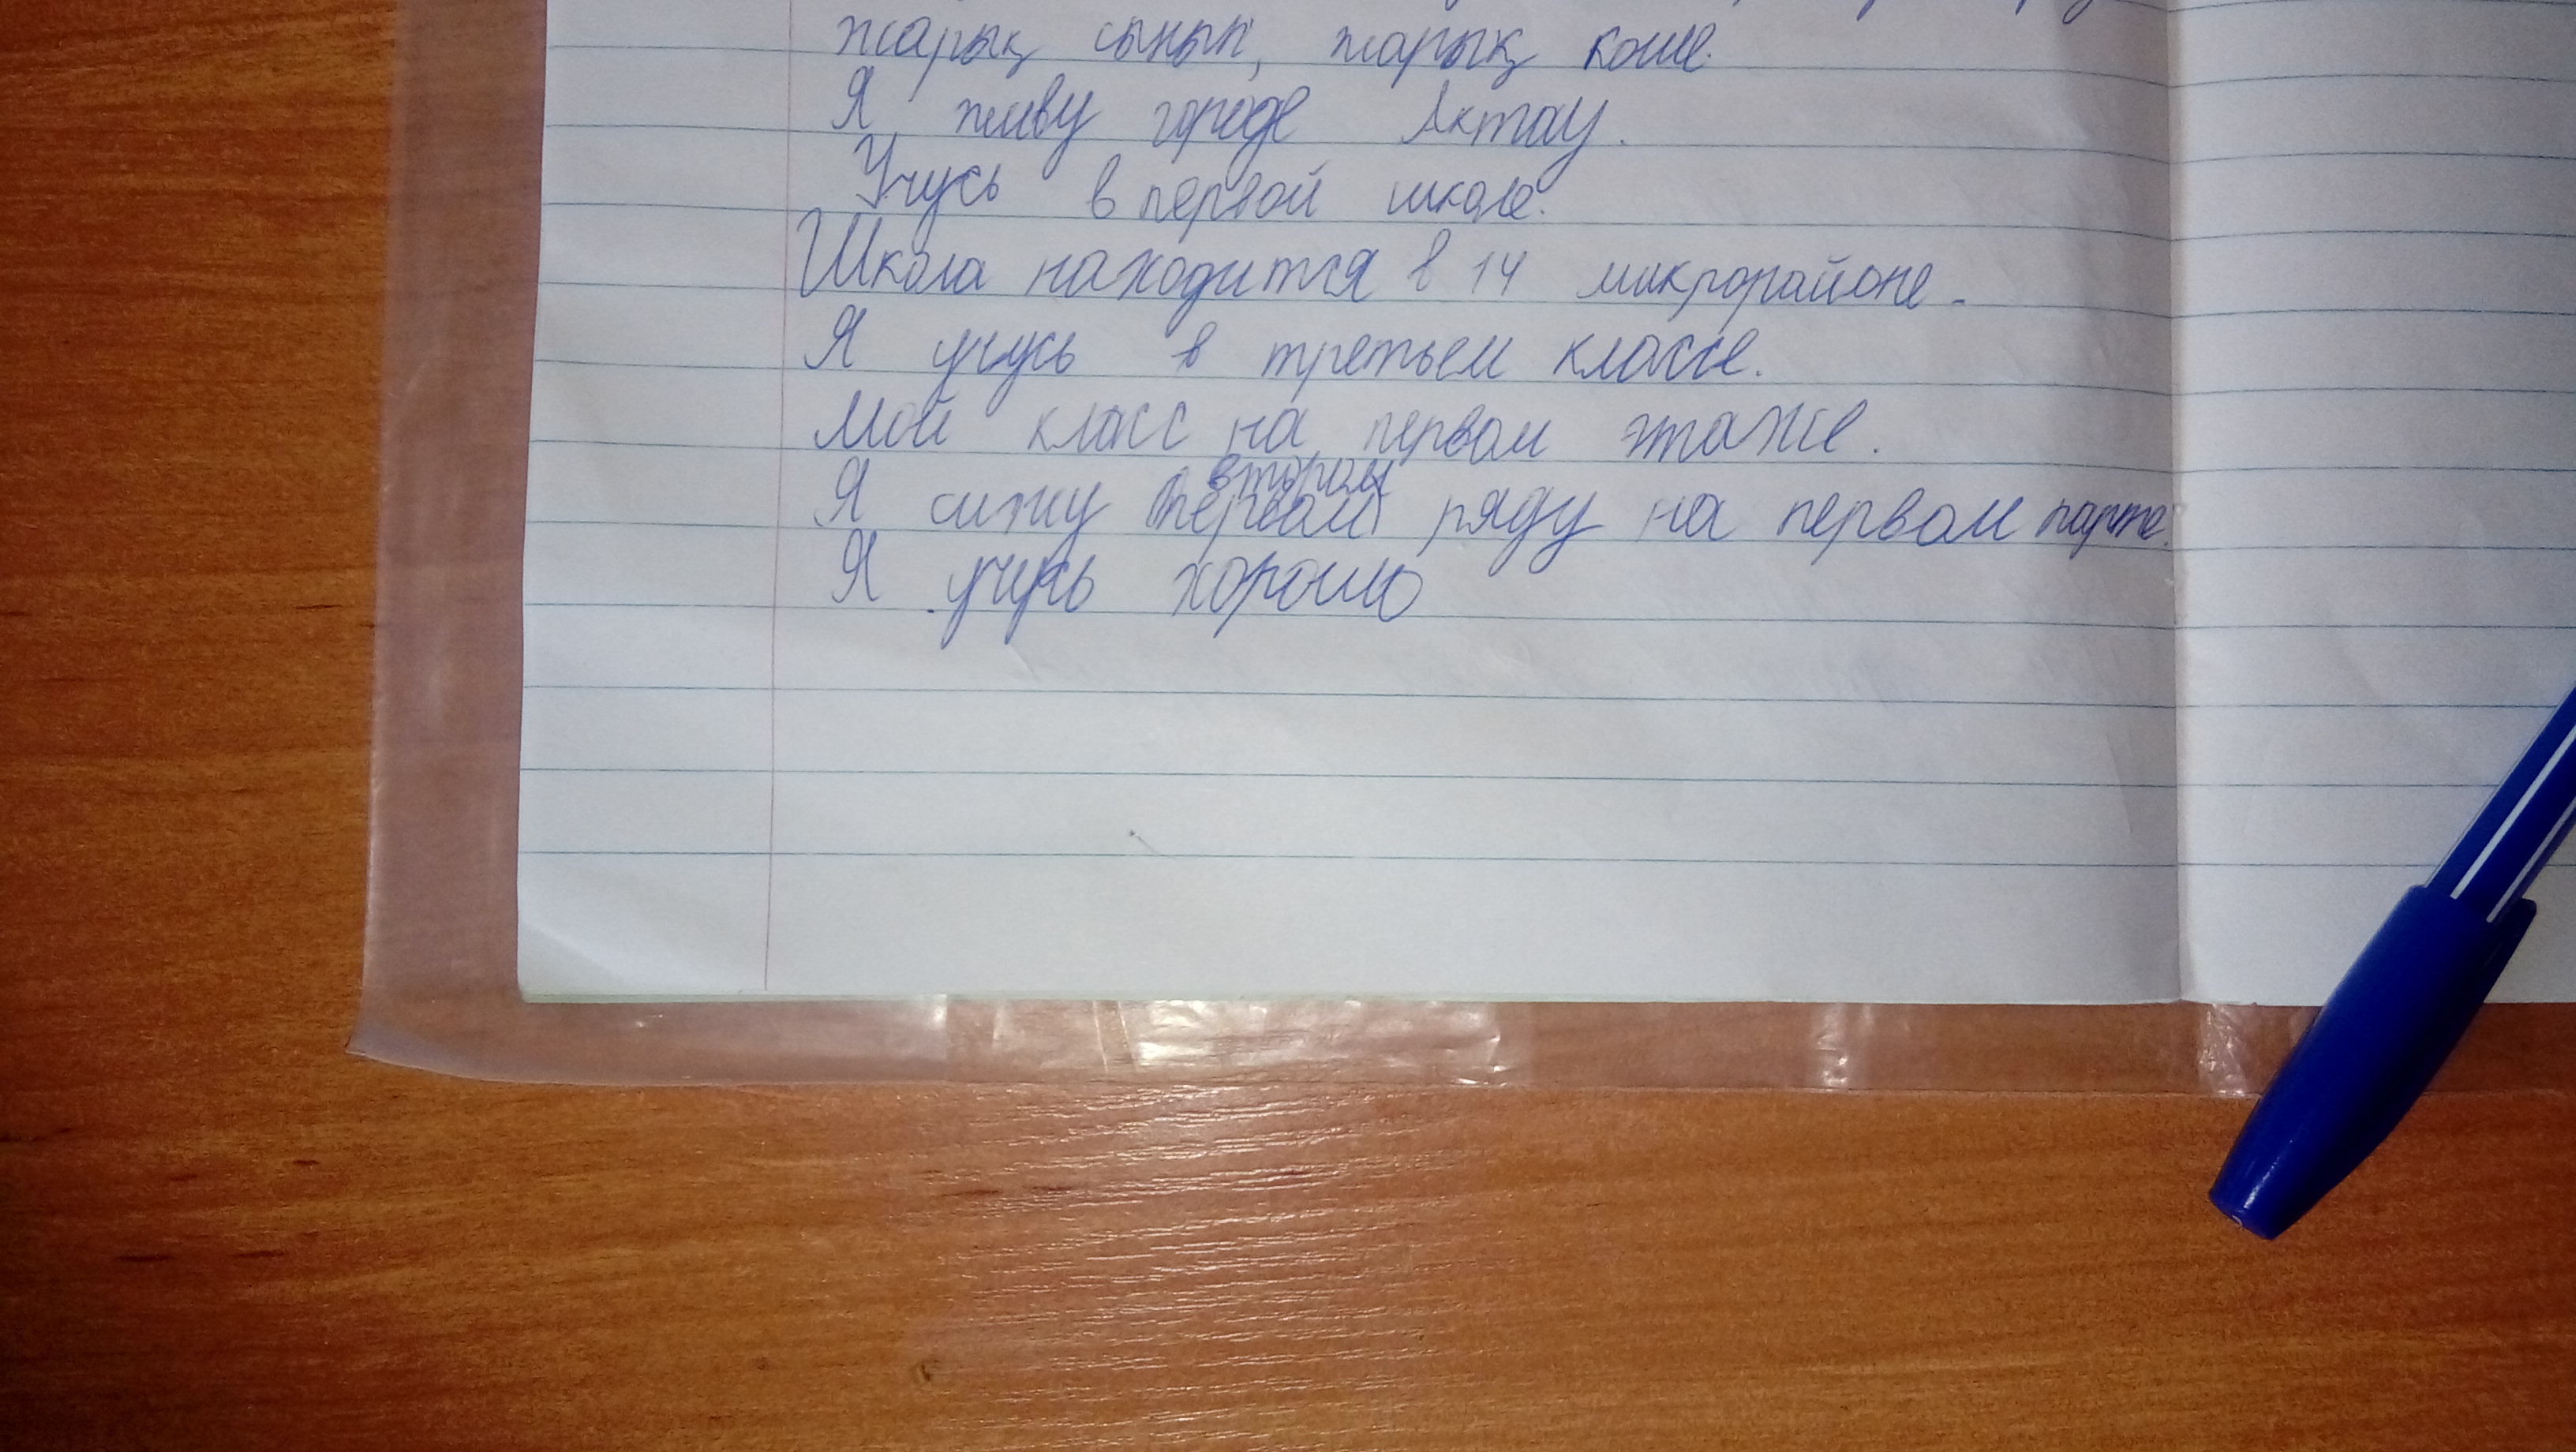 жарық сынып, жарық коше.
Я живу городе Актау.
Учусь в первой школе.
Школа находится в 14 микрорайоне.
Я учусь в третьем классе.
Мой класс на первом этаже.
втором
Я сижу первом ряду на первом парте.
Я учусь хорошо